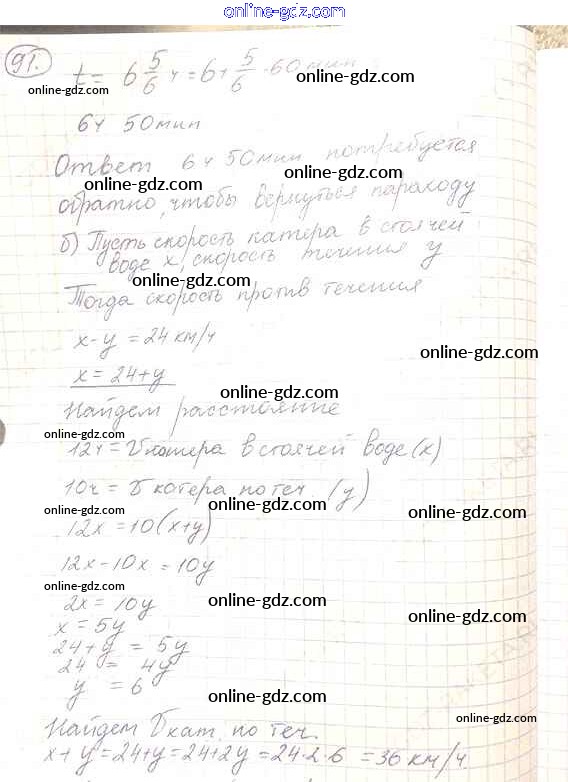 online-gdz.com
online-gdz.com
91.
t = 6 5/6 ч = 6 + 5/6 · 60 мин
online-gdz.com
online-gdz.com
6ч 50мин
online-gdz.com
Ответ 6ч 50мин потребуется
online-gdz.com
online-gdz.com
обратно, чтобы вернуться пароходу
б) Пусть скорость катера в стоячей
воде x, скорость течения y
online-gdz.com
Тогда скорость против течения
x-y = 24 км/ч
online-gdz.com
x = 24+y
online-gdz.com
Найдем расстояние
online-gdz.com
12ч = V катера в стоячей воде (x)
online-gdz.com
10ч = V котера по теч (y)
online-gdz.com
online-gdz.com
12x = 10(x+y)
12x-10x = 10y
online-gdz.com
2x = 10y
online-gdz.com
online-gdz.com
x = 5y
24+y = 5y
24 = 4y
online-gdz.com
y = 6
online-gdz.com
online-gdz.com
Найдем V кат. по теч.
x+y = 24+y = 24+2y = 24·2·6 = 36 км/ч